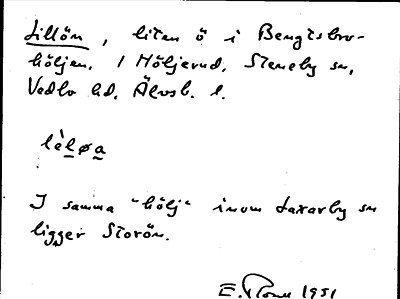 Lillön, liten ö i Bengtsbro-
höljen. / Höljerud, Steneby sn,
Vedbo hd, Älvsb. l.
lèløa
I samma "hölj" inom Laxarby sn
ligger Storön.
E. 1951